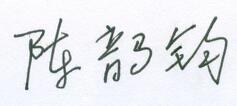 陈韵钧